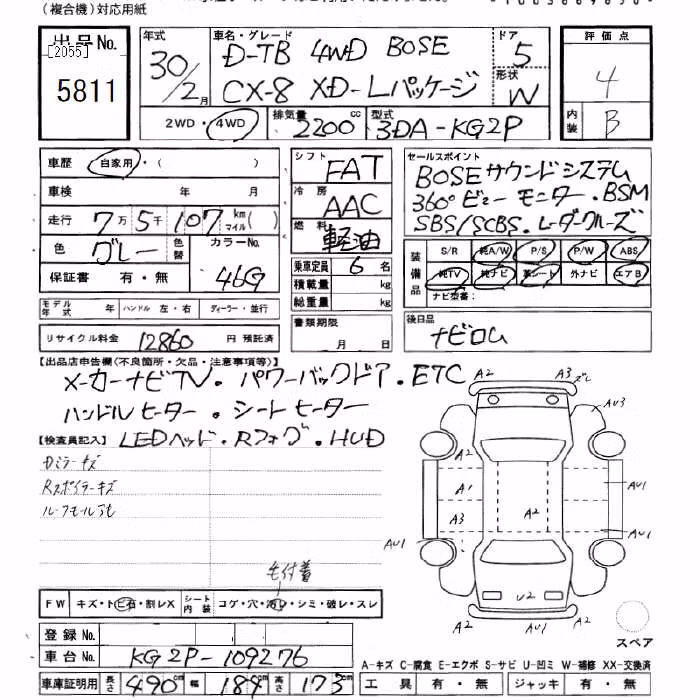 (複合機)対応用紙
出品No. [2055] 5811
年式 30/2月
車名・グレード D-TB 4WD BOSE
CX-8 XD-Lパッケージ
ドア 5
形状 W
評価点 4
内装 B
2WD・4WD
排気量 2200cc
型式 3DA-KG2P
車歴 自家用・( )
車検 年 月
走行 7万5千107km マイル( )
色 グレー 色替 カラーNo. 46G
保証書 有・無
モデル年式 年 ハンドル 左・右 ディーラー・並行
リサイクル料金 12860円 預託済
シフト FAT
冷房 AAC
燃料 軽油
乗車定員 6名
積載量 kg
総重量 kg
書類期限 月 日
セールスポイント
BOSEサウンドシステム
360°ビューモニター・BSM
SBS/SCBS・レーダクルーズ
装備品 S/R 純A/W P/S P/W ABS
純TV 純ナビ 革シート 外ナビ エアB
ナビ型番:
後日品
ナビロム
【出品店申告欄(不良箇所・欠品・注意事項等)】
メーカーナビTV・パワーバックドア・ETC
ハンドルヒーター・シートヒーター
【検査員記入】 LEDヘッド・Rフォグ・HUD
Dミラーキズ
Rスポイラーキズ
A2 A3 ズレ
AU3
A2
A1
A3
A2
AU1
AU1
AU1
A2
U2
A2 A2
毛付着
FW キズ・トビ石・割レX シート内装 コゲ・穴・汚レ・シミ・破レ・スレ
登録No.
車台No. KG2P-109276
車庫証明用 長さ 490cm 幅 184cm 高さ 173cm
スペア
A-キズ C-腐食 E-エクボ S-サビ U-凹ミ W-補修 XX-交換済
工具 有・無 ジャッキ 有・無